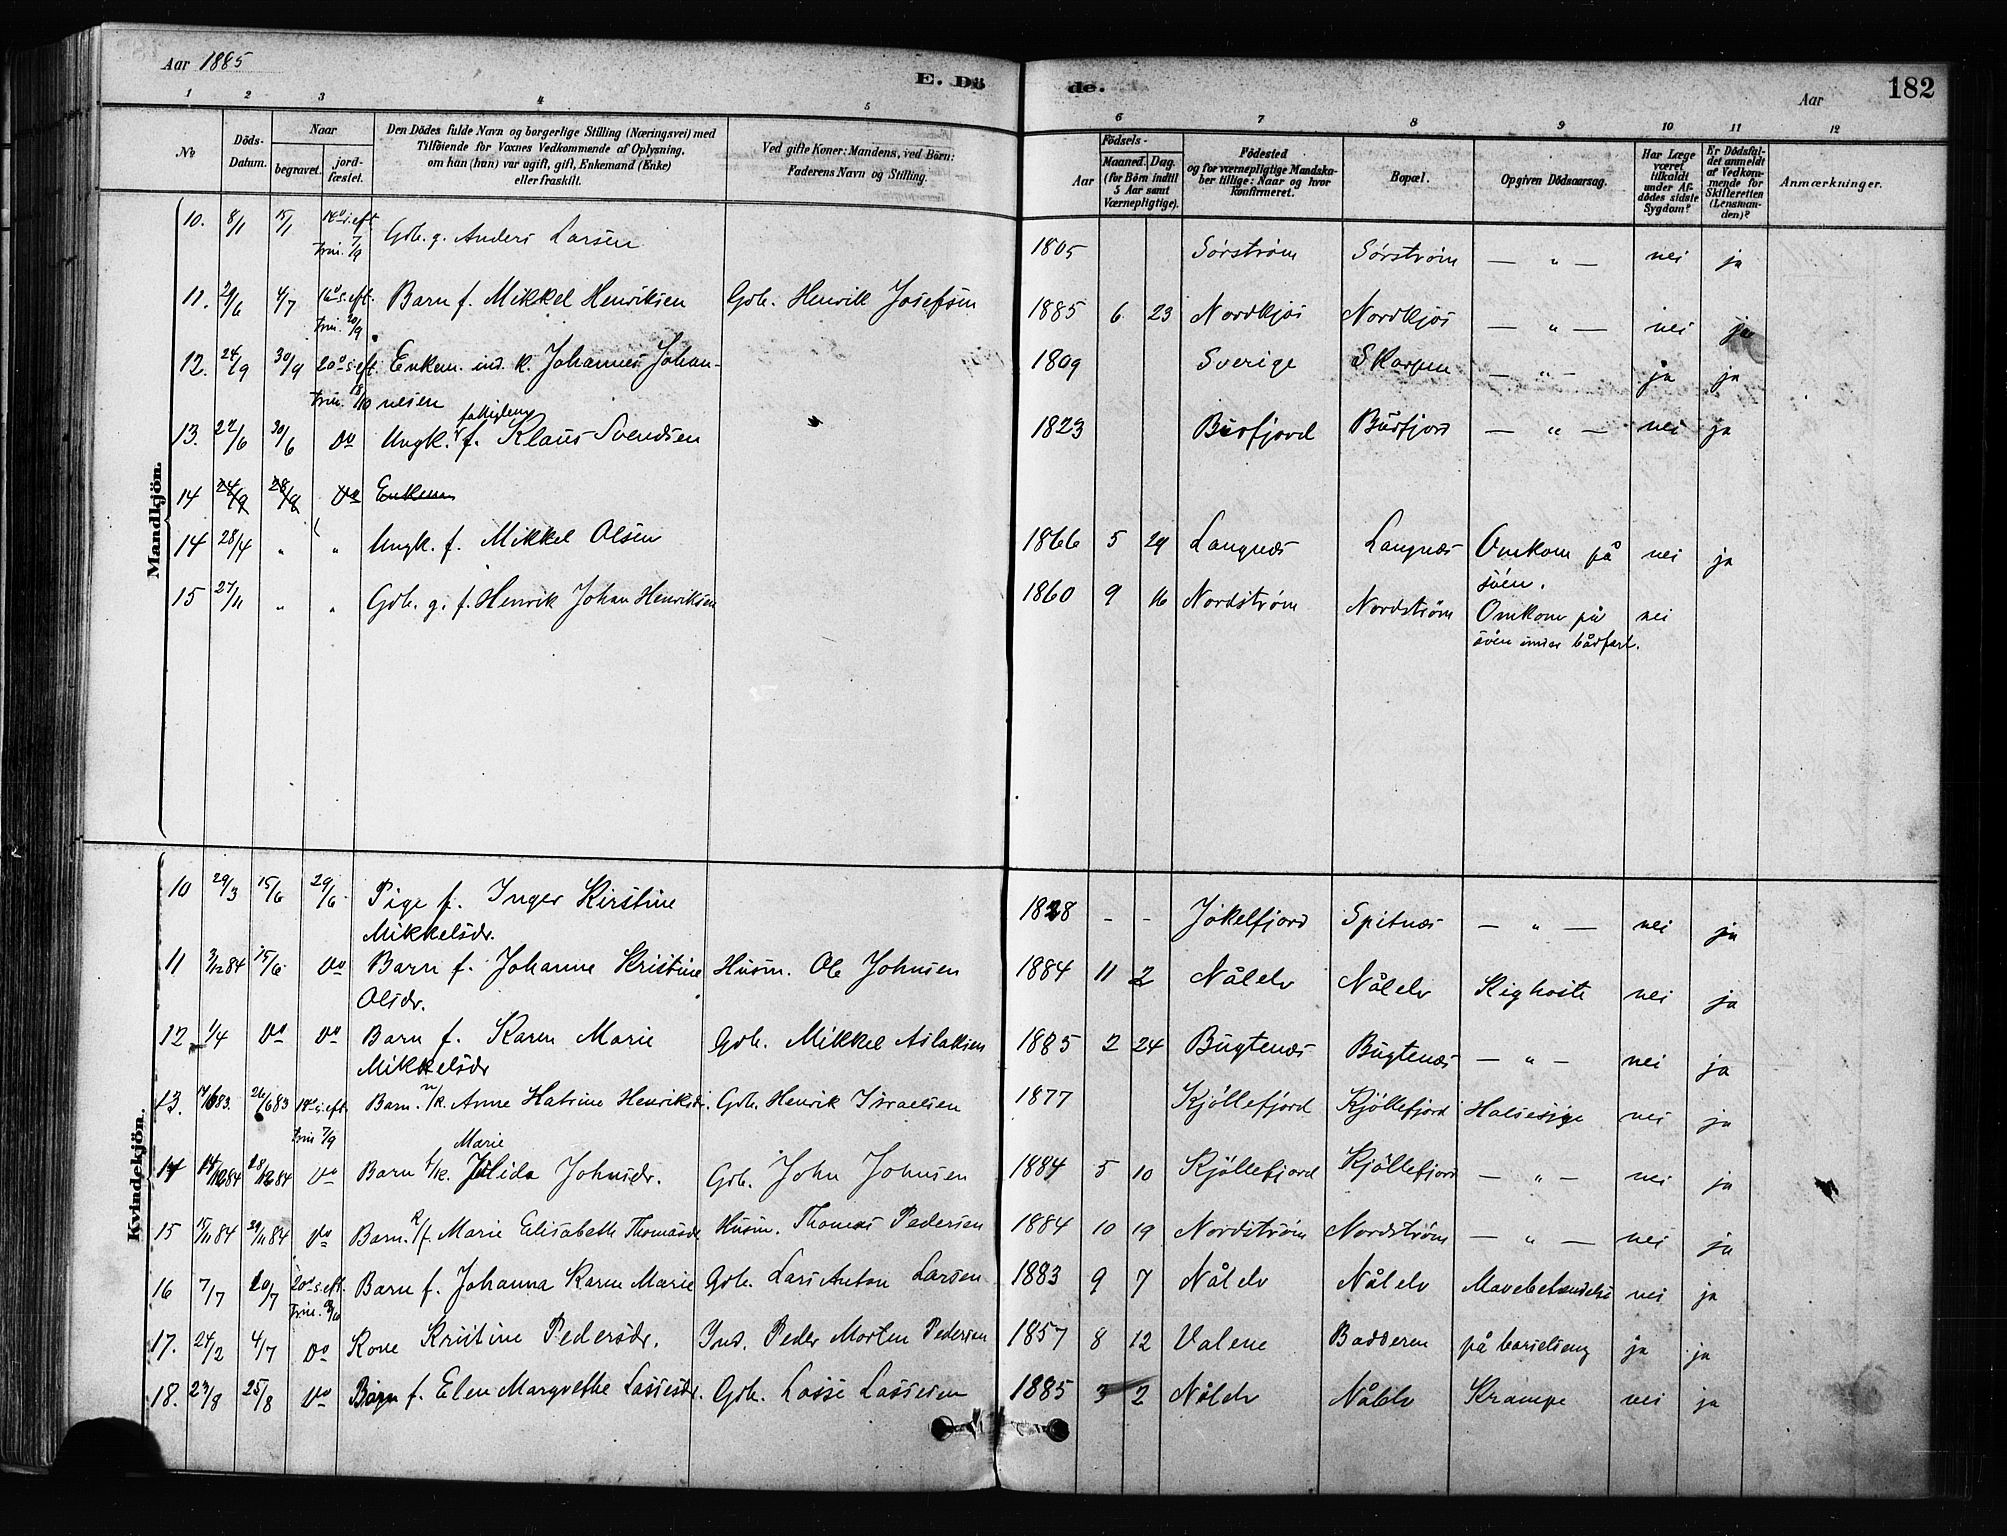 Aar 1885
E. Döde.
Aar
182
1 2 3 4 5 6 7 8 9 10 11 12
No
Döds-Datum.
Naar
begravet.
jord-fæstet.
Den Dödes fulde Navn og borgerlige Stilling (Næringsvei) med
Tilföiende for Voxnes Vedkommende af Oplysning,
om han (hun) var ugift, gift, Enkemand (Enke)
eller fraskilt.
Ved gifte Koner: Mandens, ved Börn:
Faderens Navn og Stilling.
Födsels-
Aar
Maaned. Dag.
(for Börn indtil
5 Aar samt
Værnepligtige).
Födested
og for værnepligtige Mandska-
ber tillige: Naar og hvor
konfirmeret.
Bopæl.
Opgiven Dödsaarsag.
Har Læge
været
tilkaldt
under Af-
dödes sidste
Sygdom?
Er Dödsfal-
det anmeldt
af Vedkom-
mende for
Skifteretten
(Lensman-
den)?
Anmærkninger.
Mandkjön.
10. 8/1 15/1 14de s. eft. Gdb. g. Anders Larsen 1805 Sørstrøm Sørstrøm — " — nei ja
trin. 7/9
11. 24/6 4/7 16de s. eft. Barn f. Mikkel Henriksen Gdb. Henrik Josefsen 1885 6 23 Nordkjos Nordkjos — " — nei ja
trin. 20/9
12. 24/9 30/9 20de s. eft. Enkem. ind. k. Johannes Johan- 1809 Sverige Skorpen — " — ja ja
trin. 18/10 nesen
fattiglem
13. 22/6 30/6 do Ungk. f. Klaus Svendsen 1823 Burfjord Burfjord — " — nei ja
14 24/9 28/9 do Enkem
14 28/4 " " Ungk. f. Mikkel Olsen 1866 5 29 Langnæs Langnæs Omkom på nei ja
söén.
15 27/11 " " Gdb. g. f. Henrik Johan Henriksen 1860 9 16 Nordstrøm Nordstrøm Omkom på nei
söén under bådfart.
Kvindekjön.
10 29/3 15/6 29/6 Pige f. Inger Kirstine 1828 - - Jökelfjord Spitnæs — " — nei ja
Mikkelsdr.
11 3/12 84 15/6 do Barn f. Johanne Kristine Husm. Ole Johnsen 1884 11 2 Nålelv Nålelv Kighoste nei ja
Olsdr.
12 1/4 do do Barn f. Karen Marie Gdb. Mikkel Aslaksen 1885 2 24 Bugtenæs Bugtenæs — " — nei ja
Mikkelsdr
13. 26/6 83 14de s. eft. Barn n/k. Anne Katrine Henriksdr. Gdb. Henrik Israelsen 1877 Kjöllefjord Kjöllefjord Halsesyge nei ja
trin 7/9
Marie
14 do Barn Johnsdr. Gdb. John Johnsen 1884 5 10 Kjöllefjord Kjöllefjord — " — nei ja
15 17/11 84 29/11 84 do Barn. Marie Elisabeth Thomasdr Husm. Thomas Pedersen 1884 10 19 Nordstrøm Nordstrøm — " — nei ja
16 7/7 20/7 20de s. eft. Barn f. Johanna Karen Marie Gdb. Lars Anton Larsen 1883 9 7 Nålelv Nålelv Mavebetændelse nei ja
trin.
17. 24/2 4/7 do Kone Kristine Pedersdr. Ind. Peder Morten Pedersen 1857 8 12 Valene Badderen på barselseng ja ja
18. 23/8 25/8 do Barn f. Elen Margrethe Lassesdr. Gdb. Lasse Lassesen 1885 3 2 Nålelv Nålelv Krampe nei ja